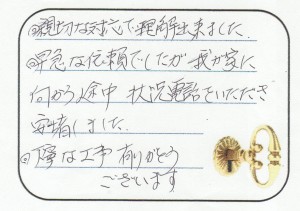 ◎親切な対応で理解出来ました.
◎早急な依頼でしたが 我が家に
向かう途中 状況電話をいただき
安堵しました.
◎丁寧な工事 有りがとう
ございます